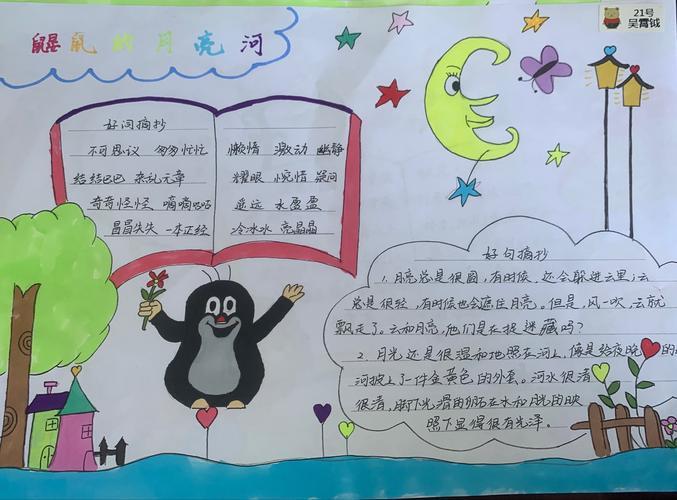 鼹鼠的月亮河
21号
吴霄钺
好词摘抄
不可思议 匆匆忙忙
结结巴巴 杂乱无章
奇奇怪怪 嘀嘀咕咕
冒冒失失 一本正经
懒惰 激动 幽静
耀眼 惋惜 疑问
遥远 水盈盈
冷冰冰 亮晶晶
好句摘抄
1. 月亮总是很圆,有时候,还会躲进云里;云
总是很轻,有时候也会遮住月亮。但是,风一吹,云就
飘走了。云和月亮,他们是在捉迷藏吗?
2. 月光还是很温和地照在河上,像是给夜晚的
河披上了一件金黄色的外套。河水很清
很清,脚下光滑的卵石在水和月光的映
照下显得很有光泽。